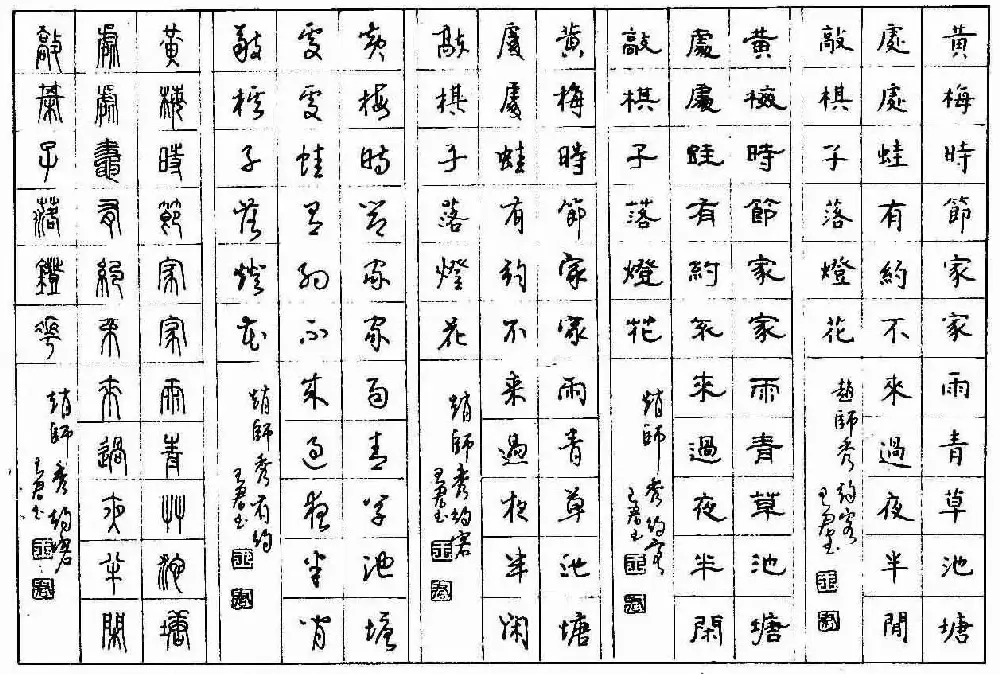 黃梅時節家家雨青草池塘
處處蛙有約不來過夜半閒
敲棋子落燈花
趙師秀約客
黃梅時節家家雨青草池塘
處處蛙有約不來過夜半閑
敲棋子落燈花
趙師秀約客
黃梅時節家家雨青草池塘
處處蛙有約不來過夜半閑
敲棋子落燈花
趙師秀約客
黃梅時節家家雨青草池塘
處處蛙有約不來過夜半閒
敲棋子落燈花
趙師秀有約
黃梅時節家家雨青艸池塘
處處鼃有約不來過夜半閑
敲棊子落鐙華
趙師秀約客